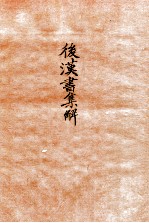 後漢書集解